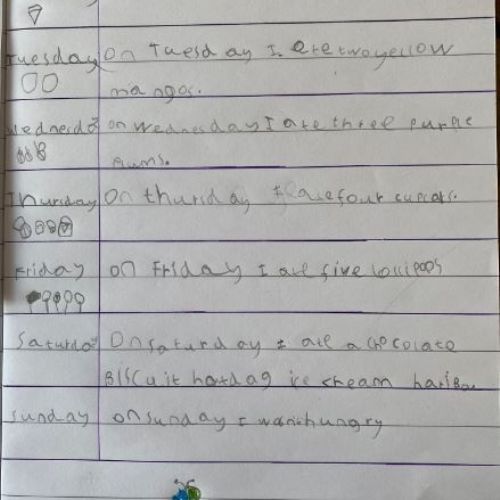 Tuesday On Tuesday I ate two yellow
mangos.
Wednesd on Wednesday I ate three purple
Plums.
Thursday On thursday I ate four cupcaks.
Friday on Friday I ate five Lollipops
Saturda On saturday I ate a chocolate
Biscuit hotdog ice cream haribo
Sunday on sunday I hungry